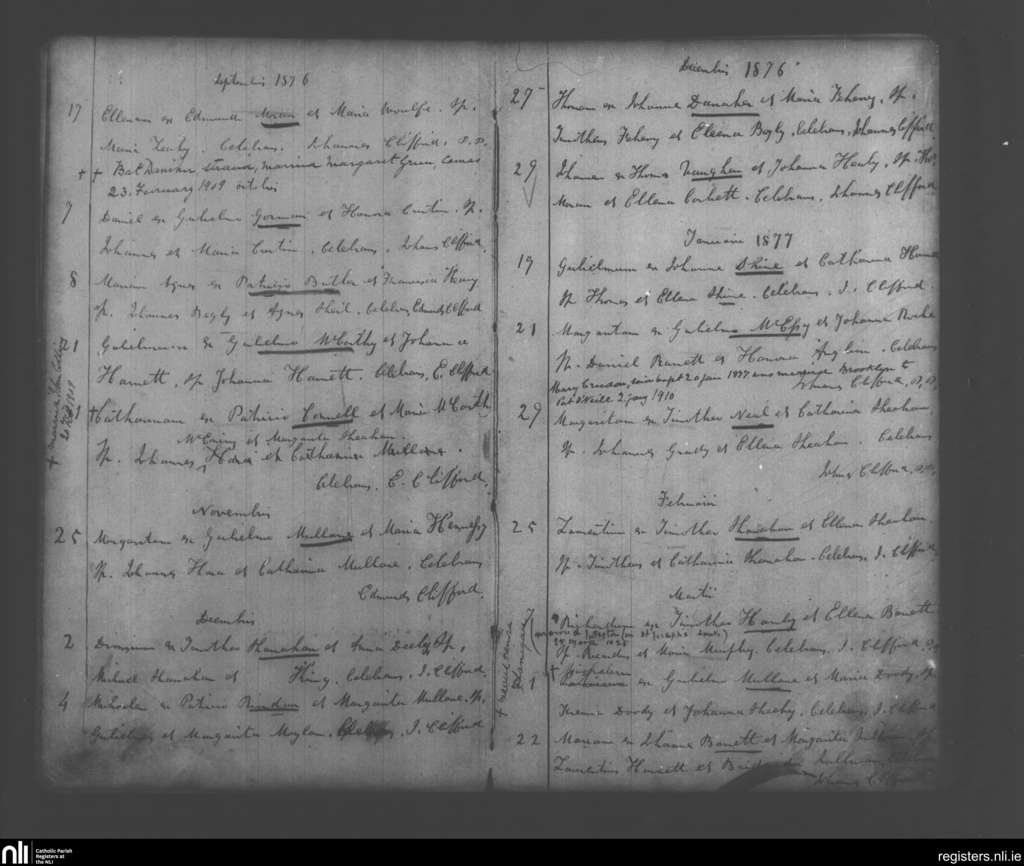 Septembris 1876
17 Ellenam ex Edmundo Moran et Maria Woulfe. Sp.
Maria Leahy. Celebrans. Johannes Clifford, P.P.
Margaret Green
23. February 1909
7 Daniel ex Gulielmo Gorman et Honora Curtin. Sp.
Johannes et Maria Curtin. Celebrans. Johans Clifford.
8 Mariam Agnes ex Patricio Butler et Francesca Henry
Sp. Johannes Begly et Agnes Sheil. Celebrans, Edmundus Clifford
21 Gulielmum ex Gulielmo McCarthy et Johanna
Harnett, Sp. Johanna Harnett. Celebrans, E. Clifford
Catharinam ex Patricio Cornell et Maria McCarthy
et Margarita Sheahan.
Sp. Johannes Hara et Catharina Mullane.
Celebrans. E. Clifford.
Novembris
25 Margaritam ex Gulielmo Mullane et Maria Hennessy
Sp. Johannes Hara et Catharina Mullane. Celebrans
Edmundus Clifford.
Decembris
2 ex Timotheo Hanahan et Deely Sp.
Michael Hanahan et King. Celebrans. J. Clifford.
4 Michaelem ex Patricio Riordan et Margarita Mullane. Sp.
Gulielmus et Margarita Moylan. Celebrans, J. Clifford
Decembris 1876
27 Thomam ex Johanne Danaher et Maria Feheny. Sp.
Timotheus Feheny et Ellena Begly. Celebrans, Johannes Clifford
29 ex Thoma Vaughan et Johanna Healy. Sp. Thos.
Moran et Ellena Corbett. Celebrans. Johannes Clifford
Januarii 1877
19 Gulielmum ex Johanne Shine et Catharina
Sp. Thomas et Ellena Shine. Celebrans. J. Clifford.
21 Margaritam ex Gulielmo McEssy et Johanna Roche
Sp. Daniel Barrett et Honora Anglim. Celebrans
Johannes Clifford, P.P.
Brooklyn to
Pat O'Neill 2 1910
29 Margaritam ex Timotheo Neal et Catharina Sheahan.
Sp. Johannes Grady et Ellena Sheahan. Celebrans
Johns Clifford, P.P.
Februarii
25 Laurentium ex Timotheo Hanahan et Ellena Sheahan.
Sp. Timotheus et Catharina Shanahan. Celebrans J. Clifford.
Martii
7 Richardum ex Timotheo Hanly et Ellena Barrett
Sp. et Maria Murphy. Celebrans, J. Clifford
1 ex Gulielmo Mullane et Maria Doody. Sp.
Doody et Johanna Sheehy. Celebrans, J. Clifford
22 Mariam ex Johanne Barrett et Margarita Sullivan. Sp
Laurentius Harnett et
Johannes Clifford
nli
Catholic Parish
Registers at
the NLI
registers.nli.ie